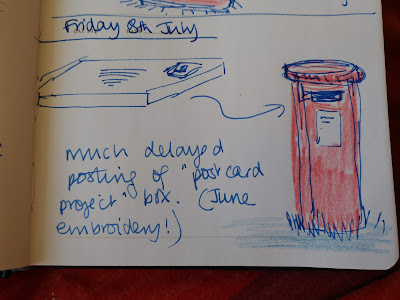 Friday 8th July
much delayed
posting of "postcard
project" box. (June
embroidery!)